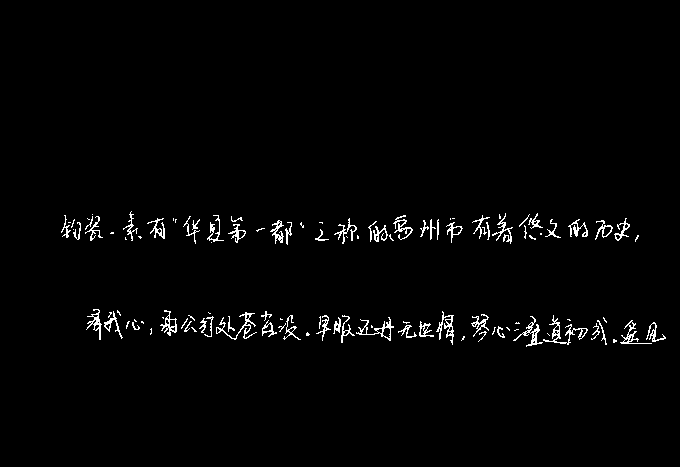 钧瓷.素有"华夏第一都"之称的禹州市有着悠久的历史,
清我心,谢公行处苍苔没.早服还丹无世情,琴心三叠道初成.遥见